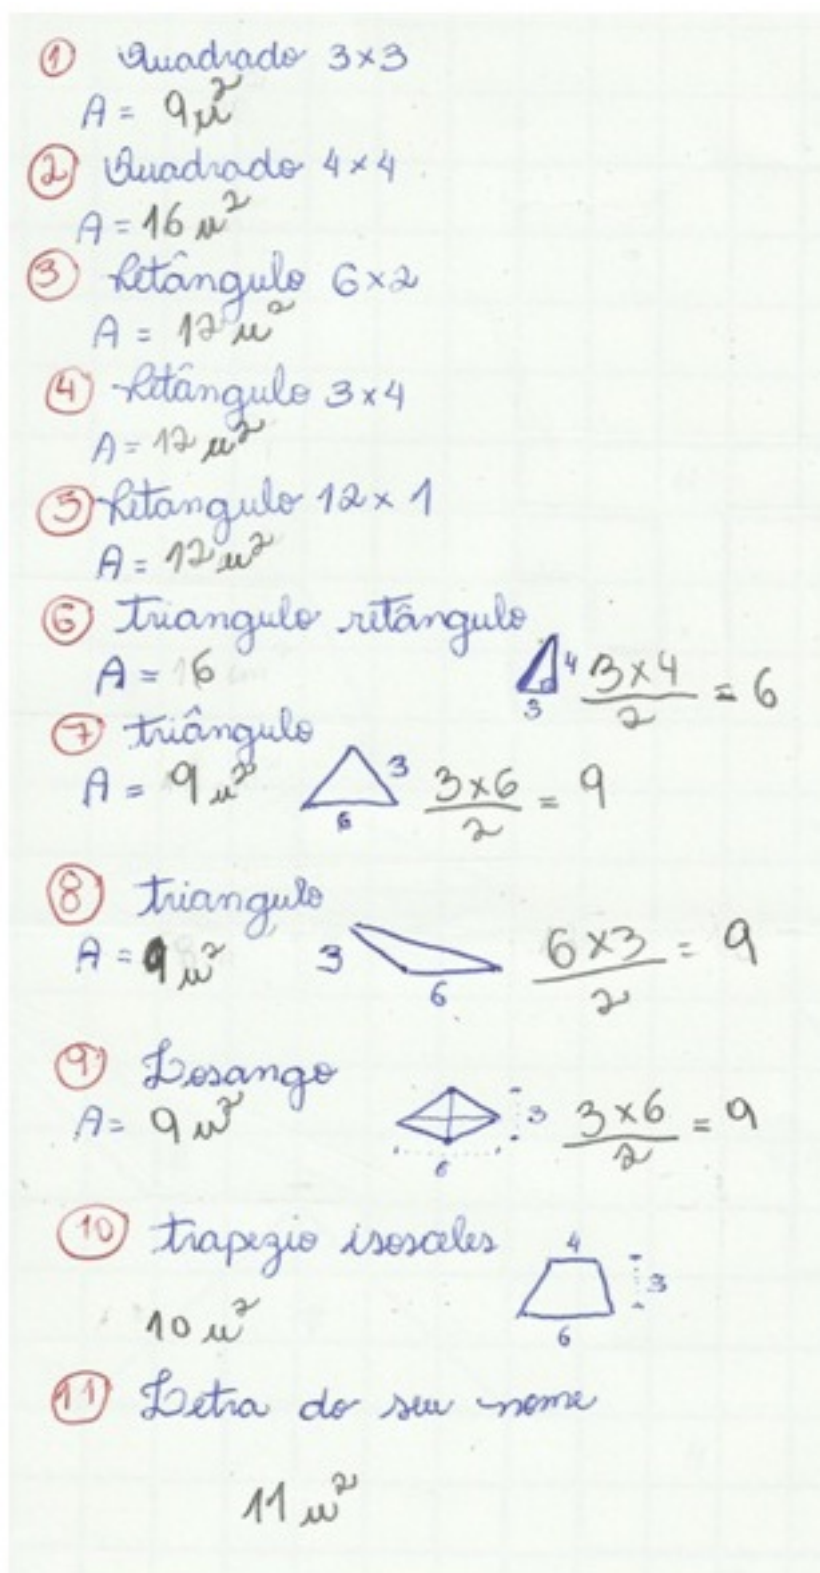 1 Quadrado 3×3
A = 9u²
2 Quadrado 4×4
A = 16u²
3 Retângulo 6×2
A = 12u²
4 Retângulo 3×4
A = 12u²
5 Retangulo 12×1
A = 12u²
6 triangulo retângulo
A = 6
4
3
3×4/2 = 6
7 triângulo
A = 9u²
3
6
3×6/2 = 9
8 triangulo
A = 9u²
3
6
6×3/2 = 9
9 Losango
A = 9u²
3
6
3×6/2 = 9
10 trapezio isosceles
4
3
6
10u²
11 Letra do seu nome
11u²